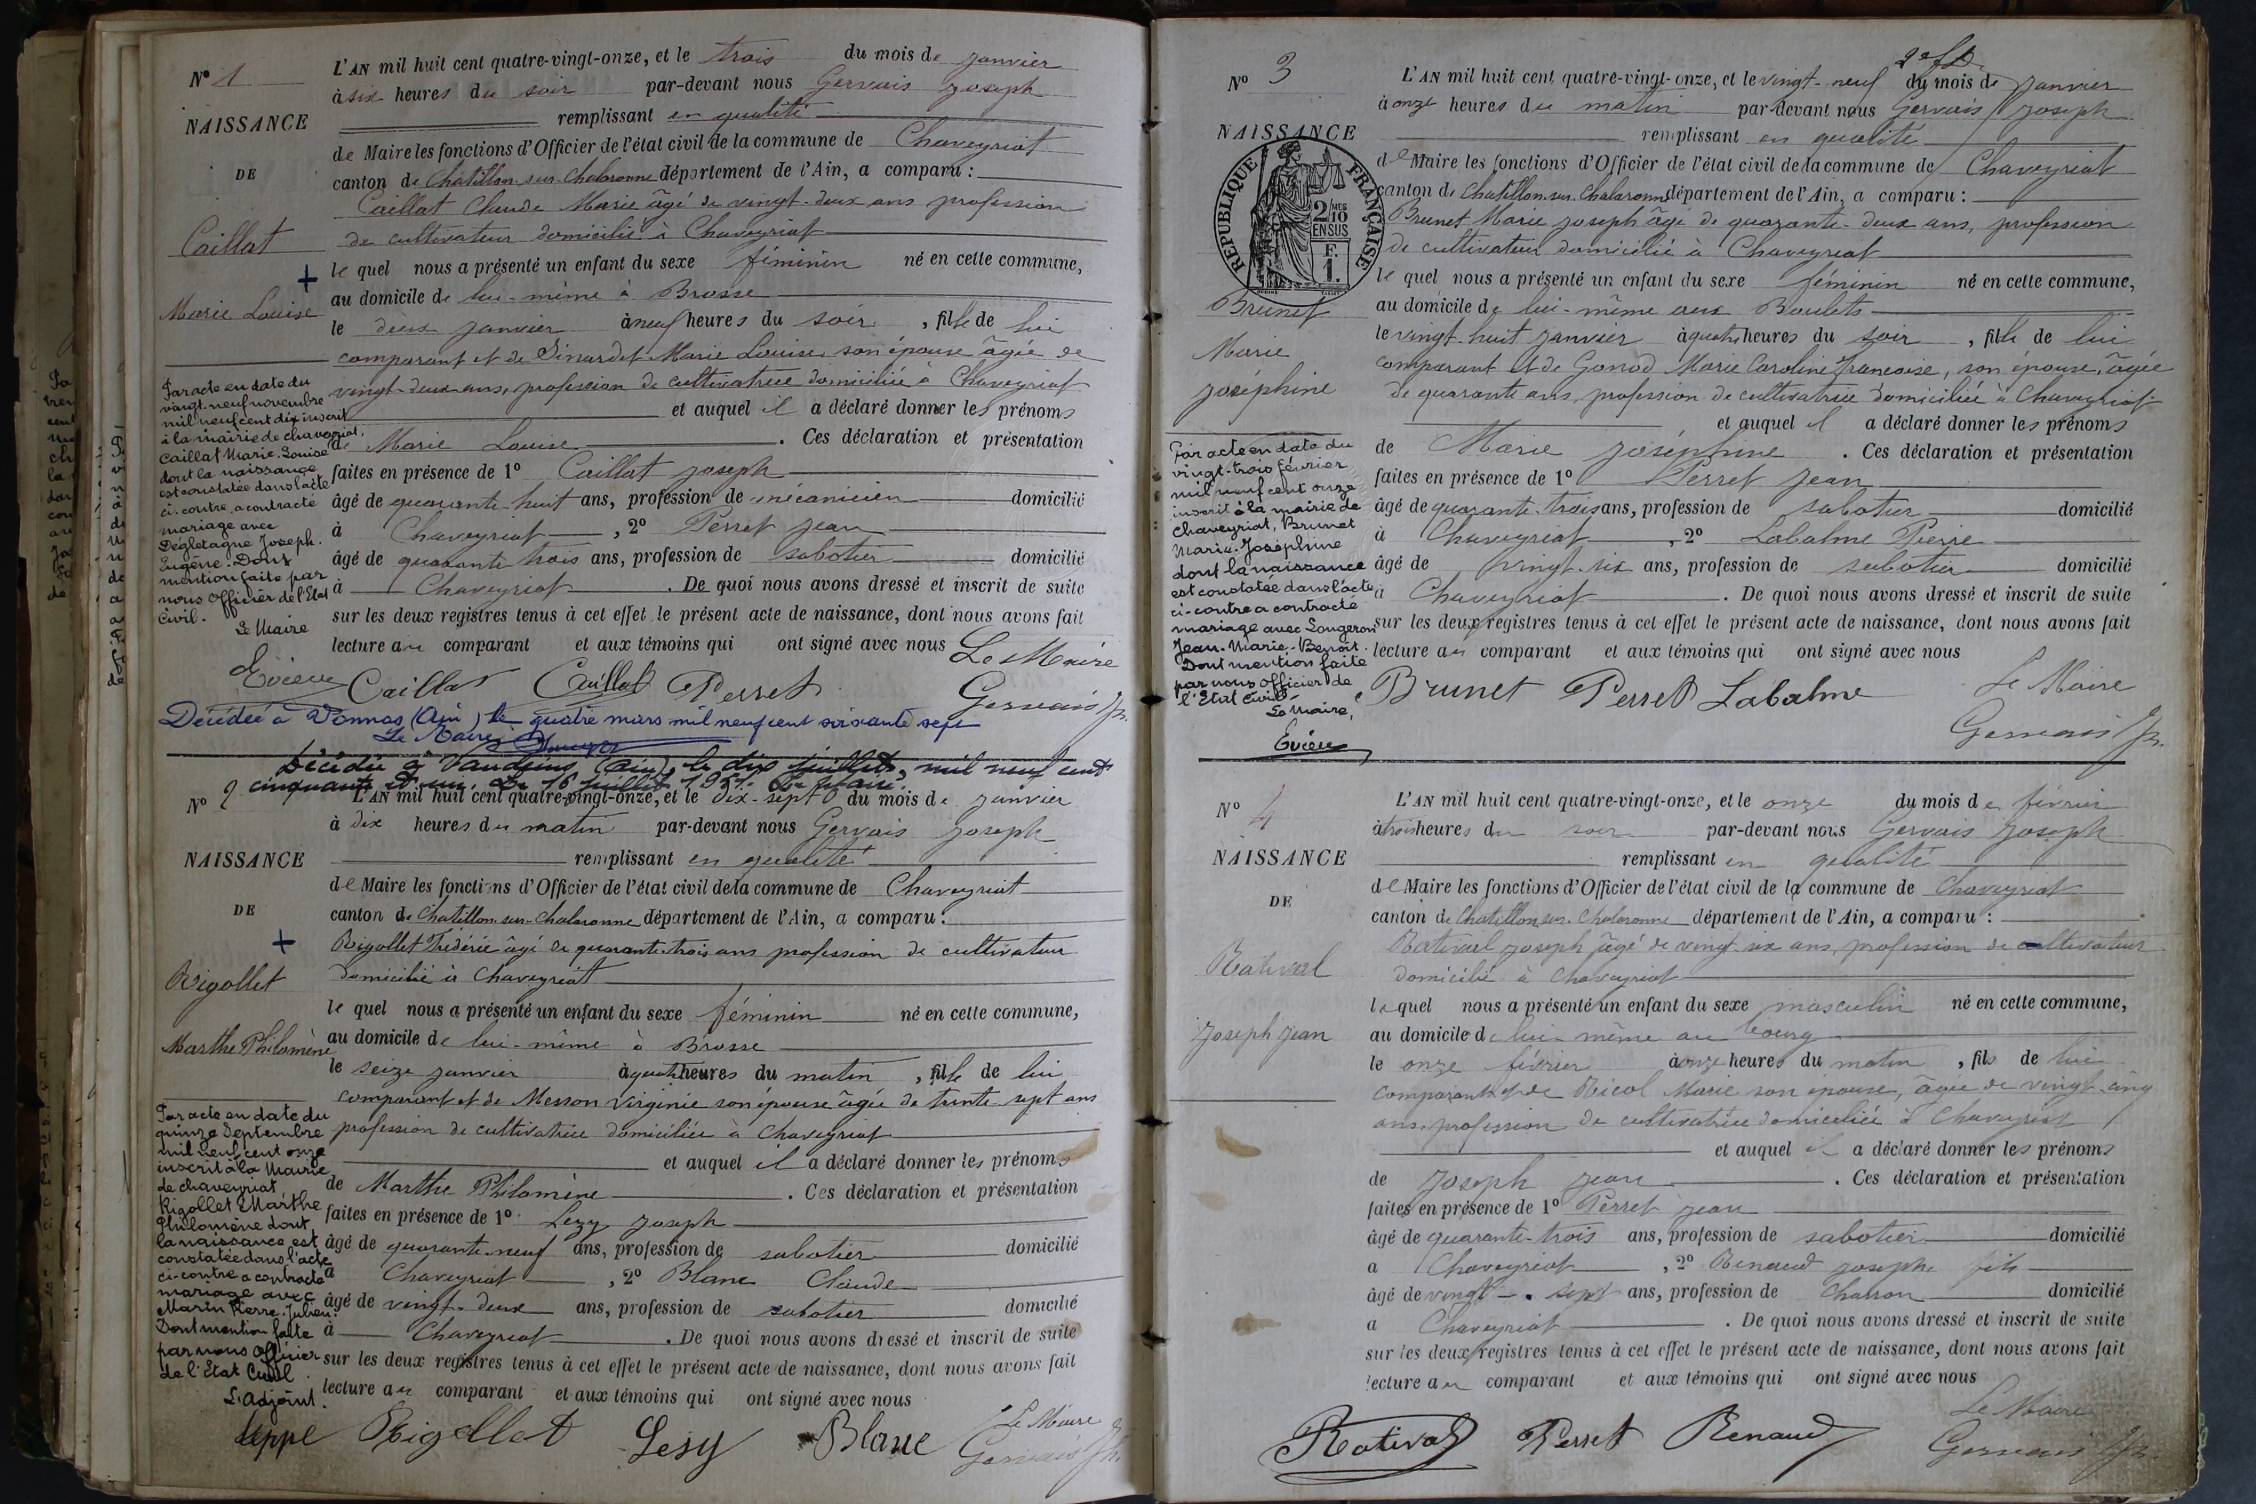 Nº 1
NAISSANCE
DE
Caillat
Marie Louise
L'AN mil huit cent quatre-vingt-onze, et le trois du mois de janvier
à six heures du soir par-devant nous Gervais Joseph
remplissant en qualité
de Maire les fonctions d'Officier de l'état civil de la commune de Chaveyriat
canton de Chatillon-sur-Chalaronne département de l'Ain, a comparu :
Caillat Claude Marie âgé de vingt-deux ans profession
de cultivateur domicilié à Chaveyriat
le quel nous a présenté un enfant du sexe féminin né en cette commune,
au domicile de lui-même à Brosse
le deux janvier à neuf heures du soir, fille de lui
comparant et de Marie Louise son épouse âgée de
vingt-deux ans, profession de cultivatrice domiciliée à Chaveyriat
et auquel il a déclaré donner les prénoms
de Marie Louise. Ces déclaration et présentation
faites en présence de 1º Caillat Joseph
âgé de quarante-huit ans, profession de mécanicien domicilié
à Chaveyriat, 2º Perret Jean
âgé de quarante trois ans, profession de sabotier domicilié
à Chaveyriat. De quoi nous avons dressé et inscrit de suite
sur les deux registres tenus à cet effet le présent acte de naissance, dont nous avons fait
lecture au comparant et aux témoins qui ont signé avec nous Le Maire
Caillat Caillat Perret Gervais Jh.
Par acte en date du
vingt-neuf novembre
mil neuf cent dix inscrit
à la mairie de chaveyriat,
Caillat Marie-Louise
dont la naissance
est constatée dans l'acte
ci-contre, a contracté
mariage avec
Dégletagne Joseph-
Eugène. Dont
mention faite par
nous Officier de l'Etat
Civil.
Le Maire
Evieux
Décédée à Vonnas (Ain) le quatre mars mil neuf cent soixante sept
Le Maire
Décédée à Vandeins (Ain), le dix juillet, mil neuf cent
cinquante et un. Le 16 juillet 1951. Le Maire.
Nº 2
NAISSANCE
DE
Rigollet
Marthe Philomène
L'AN mil huit cent quatre-vingt-onze, et le dix-sept du mois de janvier
à dix heures du matin par-devant nous Gervais Joseph
remplissant en qualité
de Maire les fonctions d'Officier de l'état civil de la commune de Chaveyriat
canton de Chatillon-sur-Chalaronne département de l'Ain, a comparu :
Rigollet Frédéric âgé de quarante-trois ans profession de cultivateur
domicilié à Chaveyriat
le quel nous a présenté un enfant du sexe féminin né en cette commune,
au domicile de lui-même à Brosse
le seize janvier à quatre heures du matin, fille de lui
comparant et de Messon Virginie son épouse âgée de trente-sept ans
profession de cultivatrice domiciliée à Chaveyriat
et auquel il a déclaré donner les prénoms
de Marthe Philomène. Ces déclaration et présentation
faites en présence de 1º Lezy Joseph
âgé de quarante-neuf ans, profession de sabotier domicilié
à Chaveyriat, 2º Blanc Claude
âgé de vingt-deux ans, profession de sabotier domicilié
à Chaveyriat. De quoi nous avons dressé et inscrit de suite
sur les deux registres tenus à cet effet le présent acte de naissance, dont nous avons fait
lecture au comparant et aux témoins qui ont signé avec nous
Le Maire
Rigollet Lesy Blanc Gervais Jh.
Par acte en date du
quinze Septembre
mil neuf cent onze
inscrit à la Mairie
de chaveyriat
Rigollet Marthe
Philomène dont
la naissance est
constatée dans l'acte
ci-contre a contracté
mariage avec
Marin Pierre-Julien.
Dont mention faite
par nous Officier
de l'Etat Civil.
L'Adjoint.
Leppe
2e fd.
Nº 3
NAISSANCE
RÉPUBLIQUE FRANÇAISE
2/10 MES
EN SUS
F.
1.
Brunet
Marie
Joséphine
L'AN mil huit cent quatre-vingt-onze, et le vingt-neuf du mois de janvier
à onze heures du matin par-devant nous Gervais Joseph
remplissant en qualité
de Maire les fonctions d'Officier de l'état civil de la commune de Chaveyriat
canton de Chatillon-sur-Chalaronne département de l'Ain, a comparu :
Brunet Marie Joseph âgé de quarante-deux ans, profession
de cultivateur domicilié à Chaveyriat
le quel nous a présenté un enfant du sexe féminin né en cette commune,
au domicile de lui-même aux Boulets
le vingt-huit janvier à quatre heures du soir, fille de lui
comparant et de Gonod Marie Caroline Françoise, son épouse, âgée
de quarante ans, profession de cultivatrice domiciliée à Chaveyriat
et auquel il a déclaré donner les prénoms
de Marie Joséphine. Ces déclaration et présentation
faites en présence de 1º Perret Jean
âgé de quarante-trois ans, profession de sabotier domicilié
à Chaveyriat, 2º Labalme Pierre
âgé de vingt-six ans, profession de sabotier domicilié
à Chaveyriat. De quoi nous avons dressé et inscrit de suite
sur les deux registres tenus à cet effet le présent acte de naissance, dont nous avons fait
lecture au comparant et aux témoins qui ont signé avec nous
Brunet Perret Labalme Le Maire
Gervais Jh.
Par acte en date du
vingt-trois février
mil neuf cent onze
inscrit à la mairie de
chaveyriat, Brunet
Marie-Joséphine
dont la naissance
est constatée dans l'acte
ci-contre a contracté
mariage avec Longeron
Jean-Marie-Benoit.
Dont mention faite
par nous Officier de
l'Etat Civil.
Le Maire,
Evieux
Nº 4
NAISSANCE
DE
Rativel
Joseph Jean
L'AN mil huit cent quatre-vingt-onze, et le onze du mois de février
à trois heures du soir par-devant nous Gervais Joseph
remplissant en qualité
de Maire les fonctions d'Officier de l'état civil de la commune de Chaveyriat
canton de Chatillon-sur-Chalaronne département de l'Ain, a comparu :
Rativel Joseph âgé de vingt six ans, profession de cultivateur
domicilié à Chaveyriat
lequel nous a présenté un enfant du sexe masculin né en cette commune,
au domicile de lui-même au bourg
le onze février à onze heures du matin, fils de lui
comparant et de Nicol Marie son épouse, âgée de vingt cinq
ans, profession de cultivatrice domiciliée à Chaveyriat
et auquel il a déclaré donner les prénoms
de Joseph Jean. Ces déclaration et présentation
faites en présence de 1º Perret Jean
âgé de quarante-trois ans, profession de sabotier domicilié
à Chaveyriat, 2º Renaud Joseph fils
âgé de vingt-sept ans, profession de Charron domicilié
à Chaveyriat. De quoi nous avons dressé et inscrit de suite
sur les deux registres tenus à cet effet le présent acte de naissance, dont nous avons fait
lecture au comparant et aux témoins qui ont signé avec nous
Le Maire
Rativel Perret Renaud Gervais Jh.